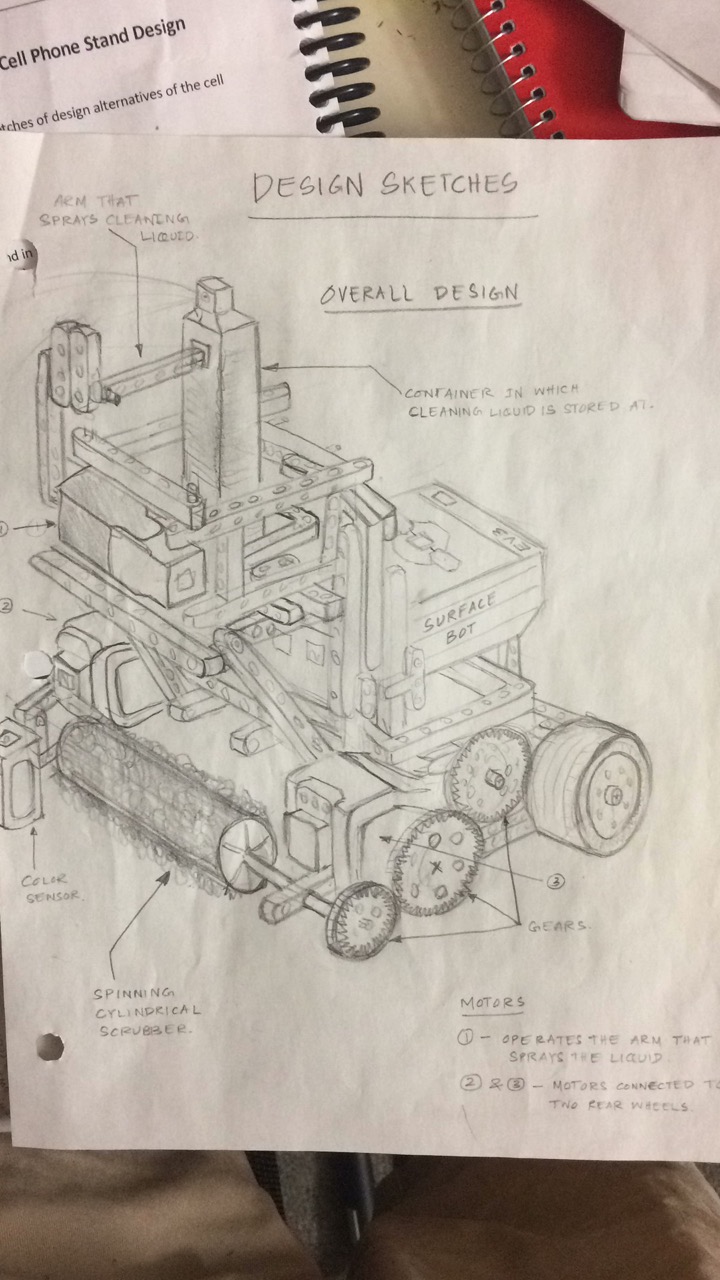 Cell Phone Stand Design
tches of design alternatives of the cell
DESIGN SKETCHES
ARM THAT
SPRAYS CLEANING
LIQUID.
nd in
OVERALL DESIGN
CONTAINER IN WHICH
CLEANING LIQUID IS STORED AT.
1
EV3
2
SURFACE
BOT
COLOR
SENSOR.
3
GEARS.
SPINNING
CYLINDRICAL
SCRUBBER.
MOTORS
① - OPERATES THE ARM THAT
SPRAYS THE LIQUID.
② & ③ - MOTORS CONNECTED TO
TWO REAR WHEELS.